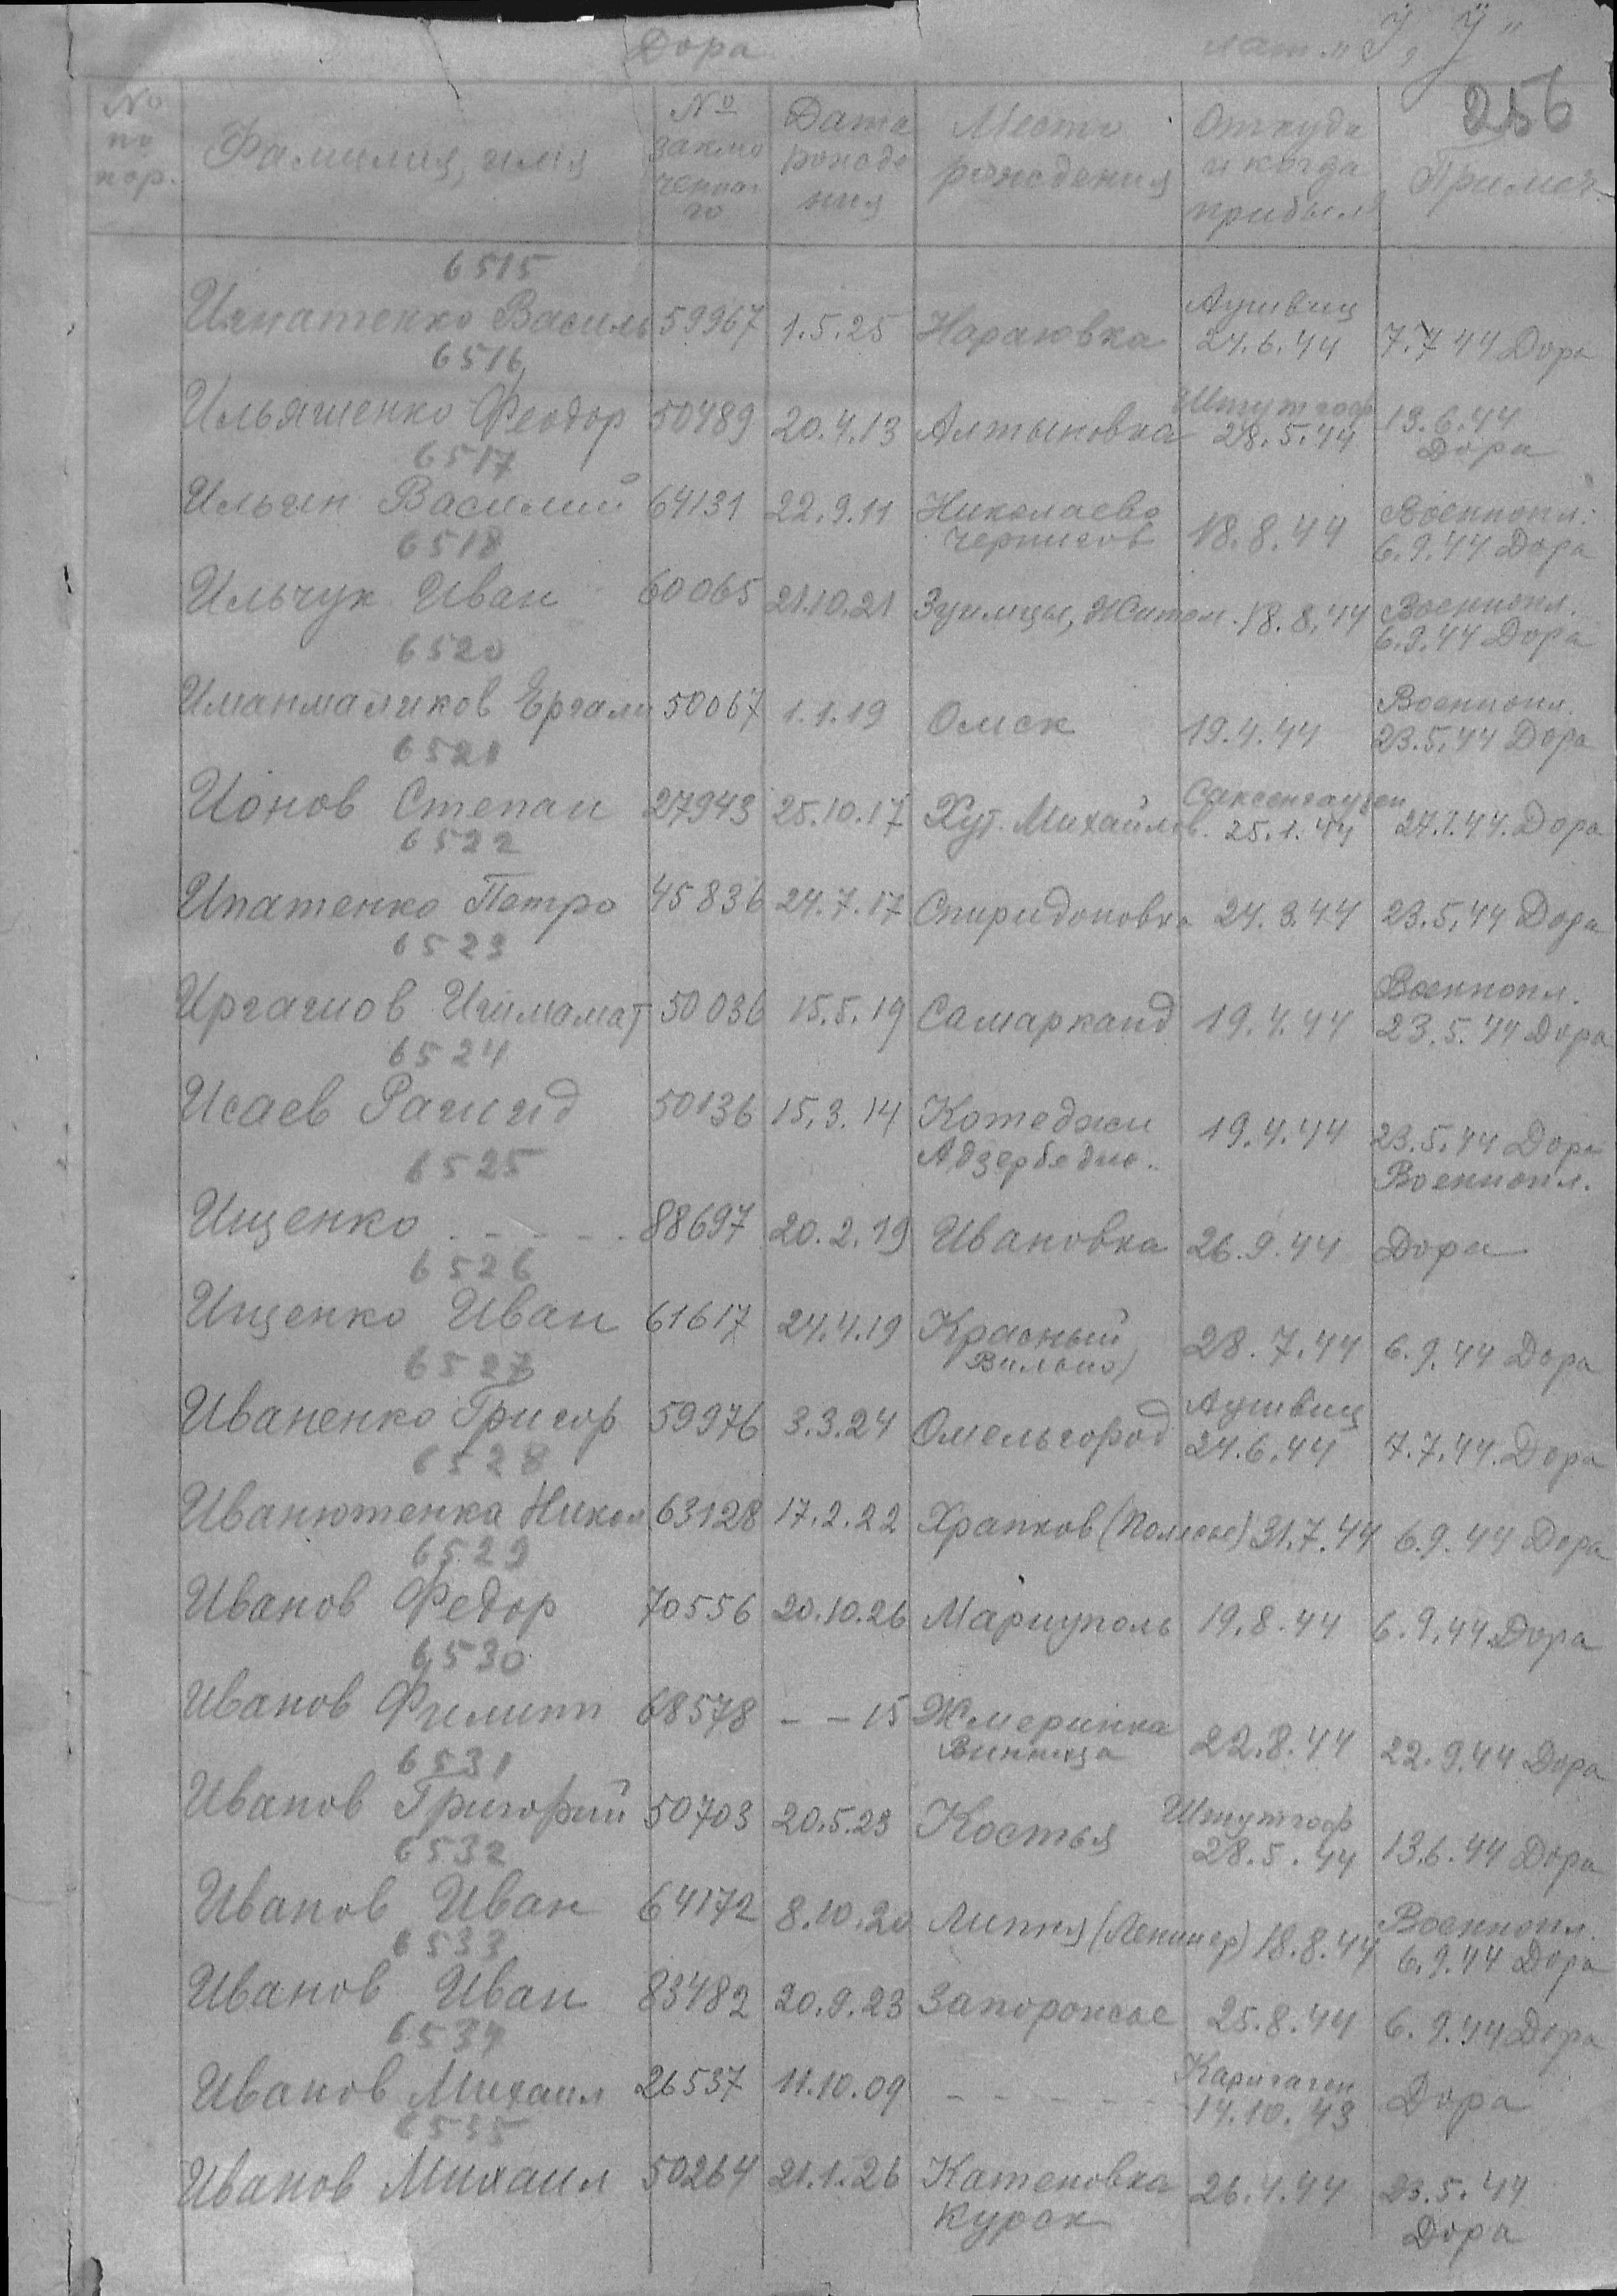 Дора лат. „J„ Y"
256
№ по пор. Фамилия, имя № заключенного Дата рождения Место рождения Откуда и когда прибыл Примеч.
6515
Игнатенко Василь 59967 1.5.25 Нараювка Аушвиц 24.6.44 7.7.44 Дора
6516
Ильяшенко Феодор 50489 20.4.13 Алтыновка Штутгоф 28.5.44 19.6.44 Дора
6517
Ильин Василий 64131 22.9.11 Николаево Чернигов 18.8.44 Военнопл. 6.9.44 Дора
6518
Ильчук Иван 60065 21.10.21 Житом. 18.8.44 Военнопл. 6.9.44 Дора
6520
Иманмаликов Ергали 50067 1.1.19 Омск 19.4.44 Военнопл. 23.5.44 Дора
6521
Ионов Степан 27943 25.10.17 Хут. Михайлов. Саксенгаузен 25.1.44 27.1.44. Дора
6522
Ипатенко Петро 45836 24.7.17 Спиридоновка 24.3.44 23.5.44 Дора
6523
Иргашов Ишмамат 50036 15.5.19 Самарканд 19.4.44 Военнопл. 23.5.44 Дора
6524
Исаев Рашид 50136 15.3.14 Котеджи 19.4.44 23.5.44 Дора Военнопл.
6525
Ищенко - - - - - 88697 20.2.19 Ивановка 26.9.44 Дора
6526
Ищенко Иван 61617 24.4.19 Красный Вильно) 28.7.44 6.9.44 Дора
6527
Иваненко Григор 59976 3.3.24 Омельгород Аушвиц 24.6.44 7.7.44. Дора
6528
Иванютенка Никол 63128 17.2.22 Храпков 31.7.44 6.9.44 Дора
6529
Иванов Федор 70556 20.10.26 Мариуполь 19.8.44 6.9.44 Дора
6530
Иванов Филипп 68578 - - 15 Жмеринка Винница 22.8.44 22.9.44 Дора
6531
Иванов Григорий 50703 20.5.23 Костья Штутгоф 28.5.44 13.6.44 Дора
6532
Иванов Иван 64172 8.10.20 Липня (Ленингр) 18.8.44 Военнопл. 6.9.44 Дора
6533
Иванов Иван 83482 20.9.23 Запорожье 25.8.44 6.9.44 Дора
6534
Иванов Михаил 26537 11.10.09 - - - - - Каригаген 14.10.43 Дора
6535
Иванов Михаил 50264 21.1.26 Катеновка Курск 26.4.44 23.5.44 Дора